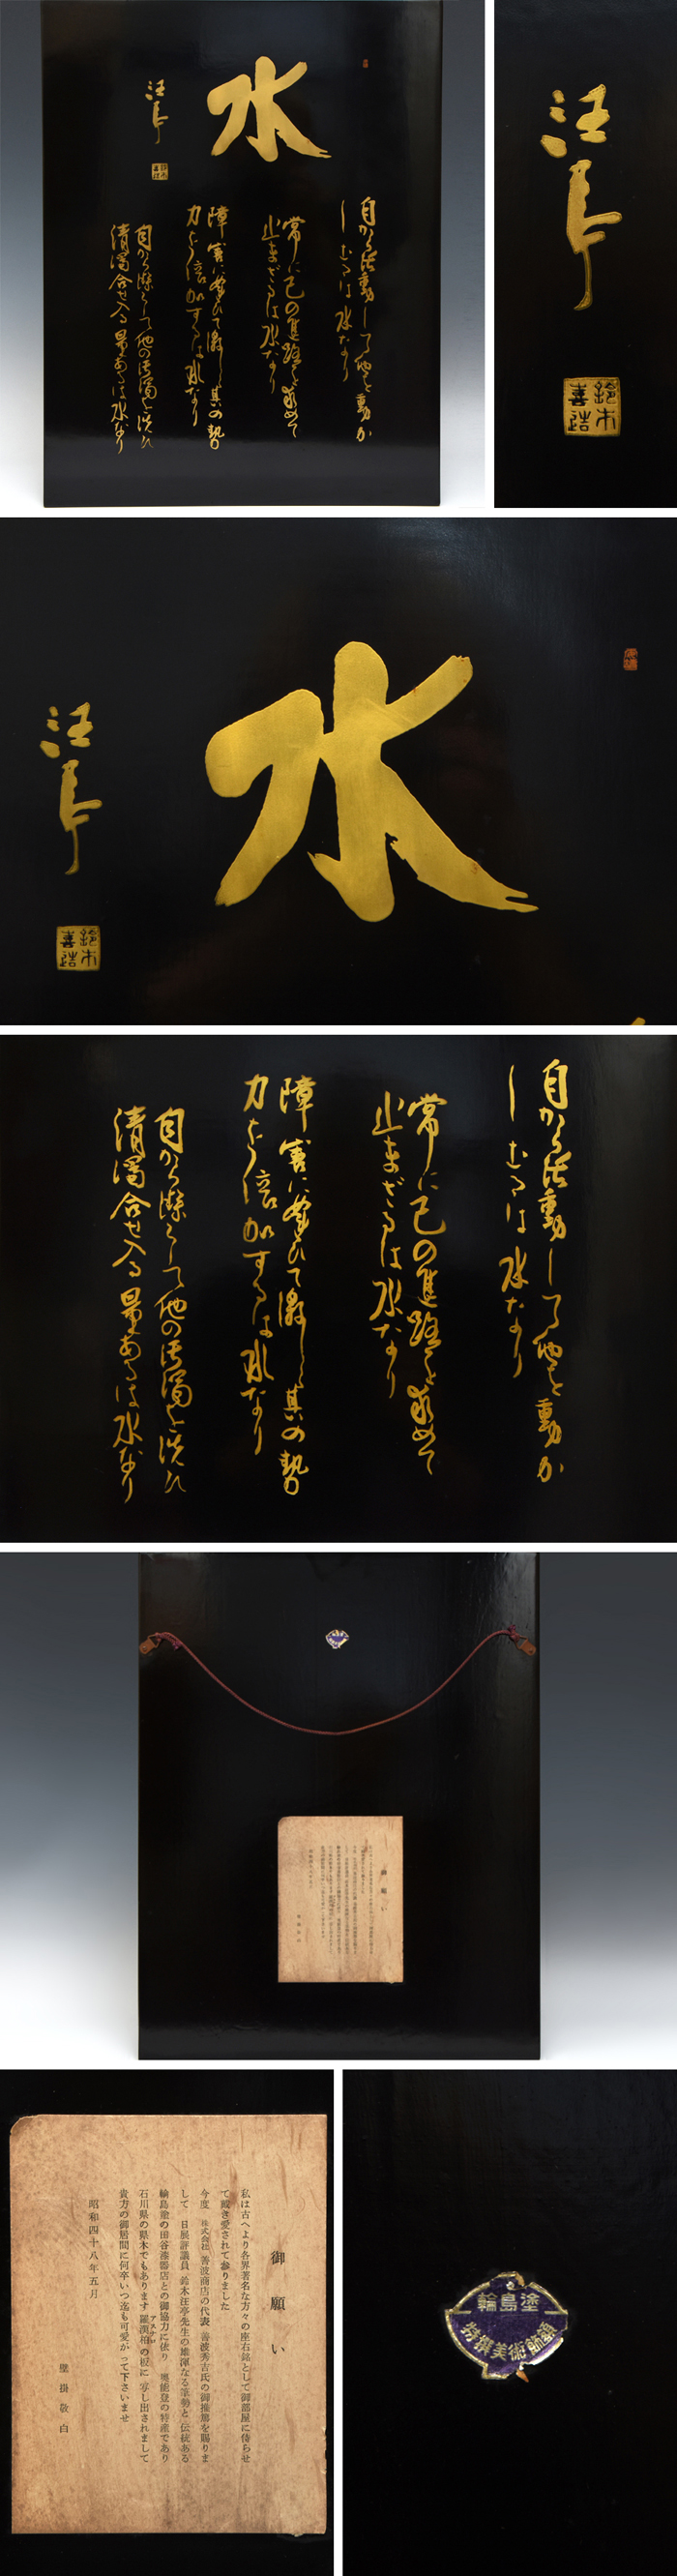 水
汪亭
鈴木
喜造
自から活動して他を動か
しむるは水なり
常に己の進路を求めて
止まざるは水なり
障害に遭ひて激し其の勢
力を倍加するは水なり
自から潔うして他の汚濁を洗ひ
清濁合せ入る量あるは水なり
汪亭
鈴木
喜造
水
汪亭
鈴木
喜造
自から活動して他を動か
しむるは水なり
常に己の進路を求めて
止まざるは水なり
障害に遭ひて激し其の勢
力を倍加するは水なり
自から潔うして他の汚濁を洗ひ
清濁合せ入る量あるは水なり
御願い
御願い
私は古へより各界著名な方々の座右銘として御部屋に侍らせ
て戴き愛されて参りました
今度 株式会社 善波商店の代表 善波秀吉氏の御推薦を賜りま
して 日展評議員 鈴木汪亭先生の雄渾なる筆勢と 伝統ある
輪島塗の田谷漆器店との御協力に依り 奥能登の特産であり
石川県の県木でもあります 羅漢柏の板に 写し出されまして
アスナロ
貴方の御居間に何卒いつ迄も可愛がって下さいませ
昭和四十八年五月
壁掛敬白
輪島塗
特撰美術飾額